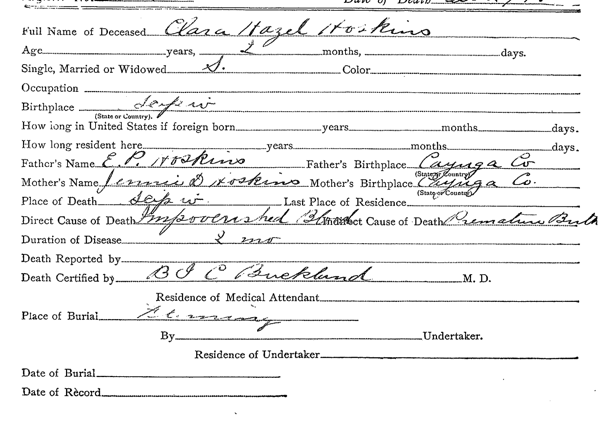 Date of Death
Full Name of Deceased Clara Hazel Hoskins
Age years, 2 months, days.
Single, Married or Widowed S. Color
Occupation
Birthplace
(State or Country).
How long in United States if foreign born years months days.
How long resident here years months days.
Father's Name E. P. Hoskins Father's Birthplace Cayuga Co
(State or Country)
Mother's Name Jennie D Hoskins Mother's Birthplace Cayuga Co.
(State or Country)
Place of Death Last Place of Residence
Direct Cause of Death Impoverished Blood Indirect Cause of Death Premature Birth
Duration of Disease 2 mo
Death Reported by
Death Certified by B I C Buckland M. D.
Residence of Medical Attendant
Place of Burial Fleming
By Undertaker.
Residence of Undertaker
Date of Burial
Date of Rècord